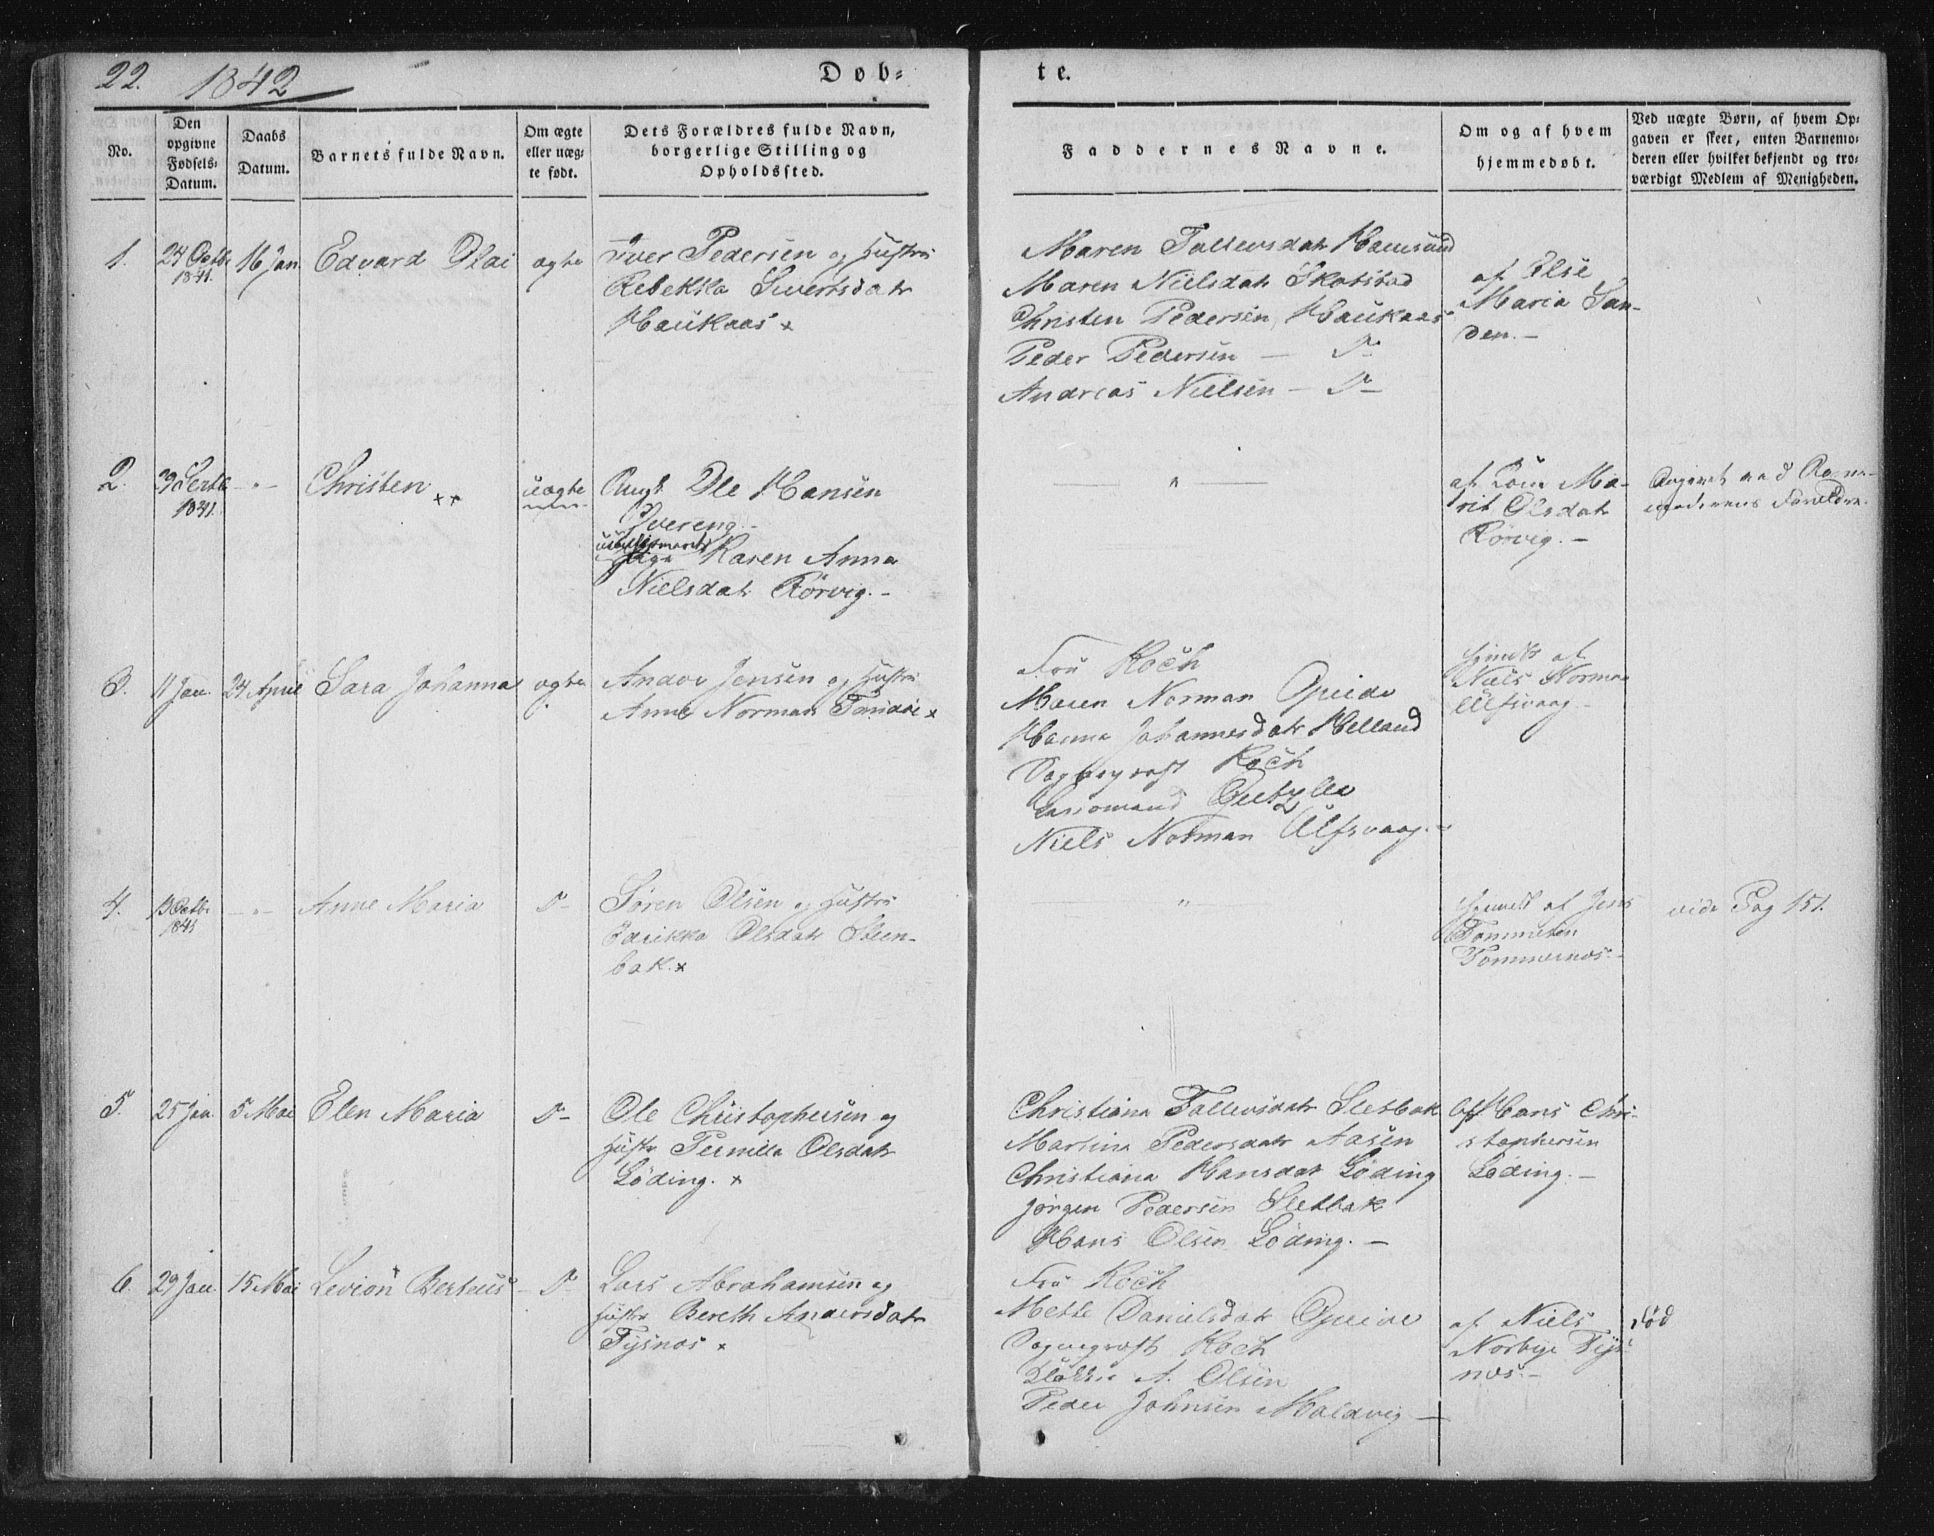 22. 1842
Døb-
te.
No.
Den opgivne Fødsels-Datum.
Daabs Datum.
Barnets fulde Navn.
Om ægte eller uæg-te født.
Dets Forældres fulde Navn, borgerlige Stilling og Opholdssted.
Faddernes Navne.
Om og af hvem hjemmedøbt.
Ved uægte Børn, af hvem Op-gaven er skeet, enten Barnemo-deren eller hvilket bekjendt og tro-værdigt Medlem af Menigheden.
1.
24 Octb.
1841.
16 Jan
Edvard Olai
ægte
Iver Pedersen og Hustru
Rebekka Sivertsdatr
Haukaas x
Maren Tollevsdatr Hamsund
Maren Nielsdatr Skotstad
Christen Pedersen, Haukaas
Peder Pedersen — D-
Andreas Nielsen — D-
af Else
Maria San-
den. -
2.
1841.
- " -
Christen xx
uægte
Ungk Ole Hansen
Karen Anna
Nielsdatr Rørvig. -
"
af Kone Ma-
rit Olsdatr
Rørvig. -
Angivet ved Barne-
moderens Forældre.
3.
11 Jan.
24 April
Sara Johanna
ægte
Andor Jensen og Hustru
Anne Norman Taraldø x
Fru Koch
Maren Norman Opeide
Hanna Johannesdatr Helland
Sogneprest Koch
Niels Norman Ulfsvaag. -
Hjmdt af
Niels Norman
Ulfsvaag -
4.
13 Octb.
1841
- " -
Anne Maria
D-
Søren Olsen og Hustru
Olsdatr Steen-
bak. x
"
Hjemdt af Jens
Tommesen
Tømmernes. -
vide Pag 151.
5.
25 Jan.
5 Mai
Elen Maria
D-
Ole Christophersen og
Hustru Pernilla Olsdatr
Løding. x
Christiana Tollevsdatr Sletbak
Martina Pedersdatr Aasen
Christiana Hansdat Løding
Jørgen Pedersen Sletbak
Hans Olsen Løding. -
af Hans Chri-
stophersen
Løding. -
6.
29 Jan
15 Mai
Levion Berteus
D-
Lars Abrahamsen og
Hustru Bereth Andersdatr
Tysnes x
Fru Koch
Mette Danielsdatr Opeide
Sogneprest Koch
Klokker A. Olsen
Peder Johnsen Maldvig —
af Niels
Norbye Tys-
nes. -
død